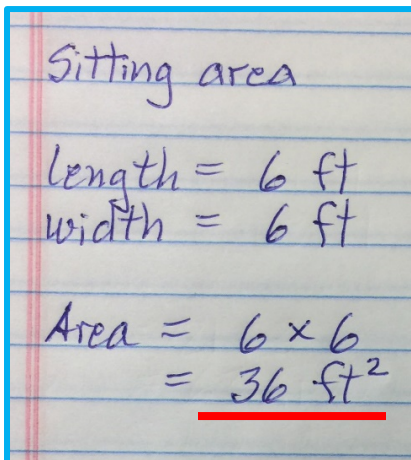 Sitting area
length = 6 ft
width = 6 ft
Area = 6 × 6
= 36 ft²